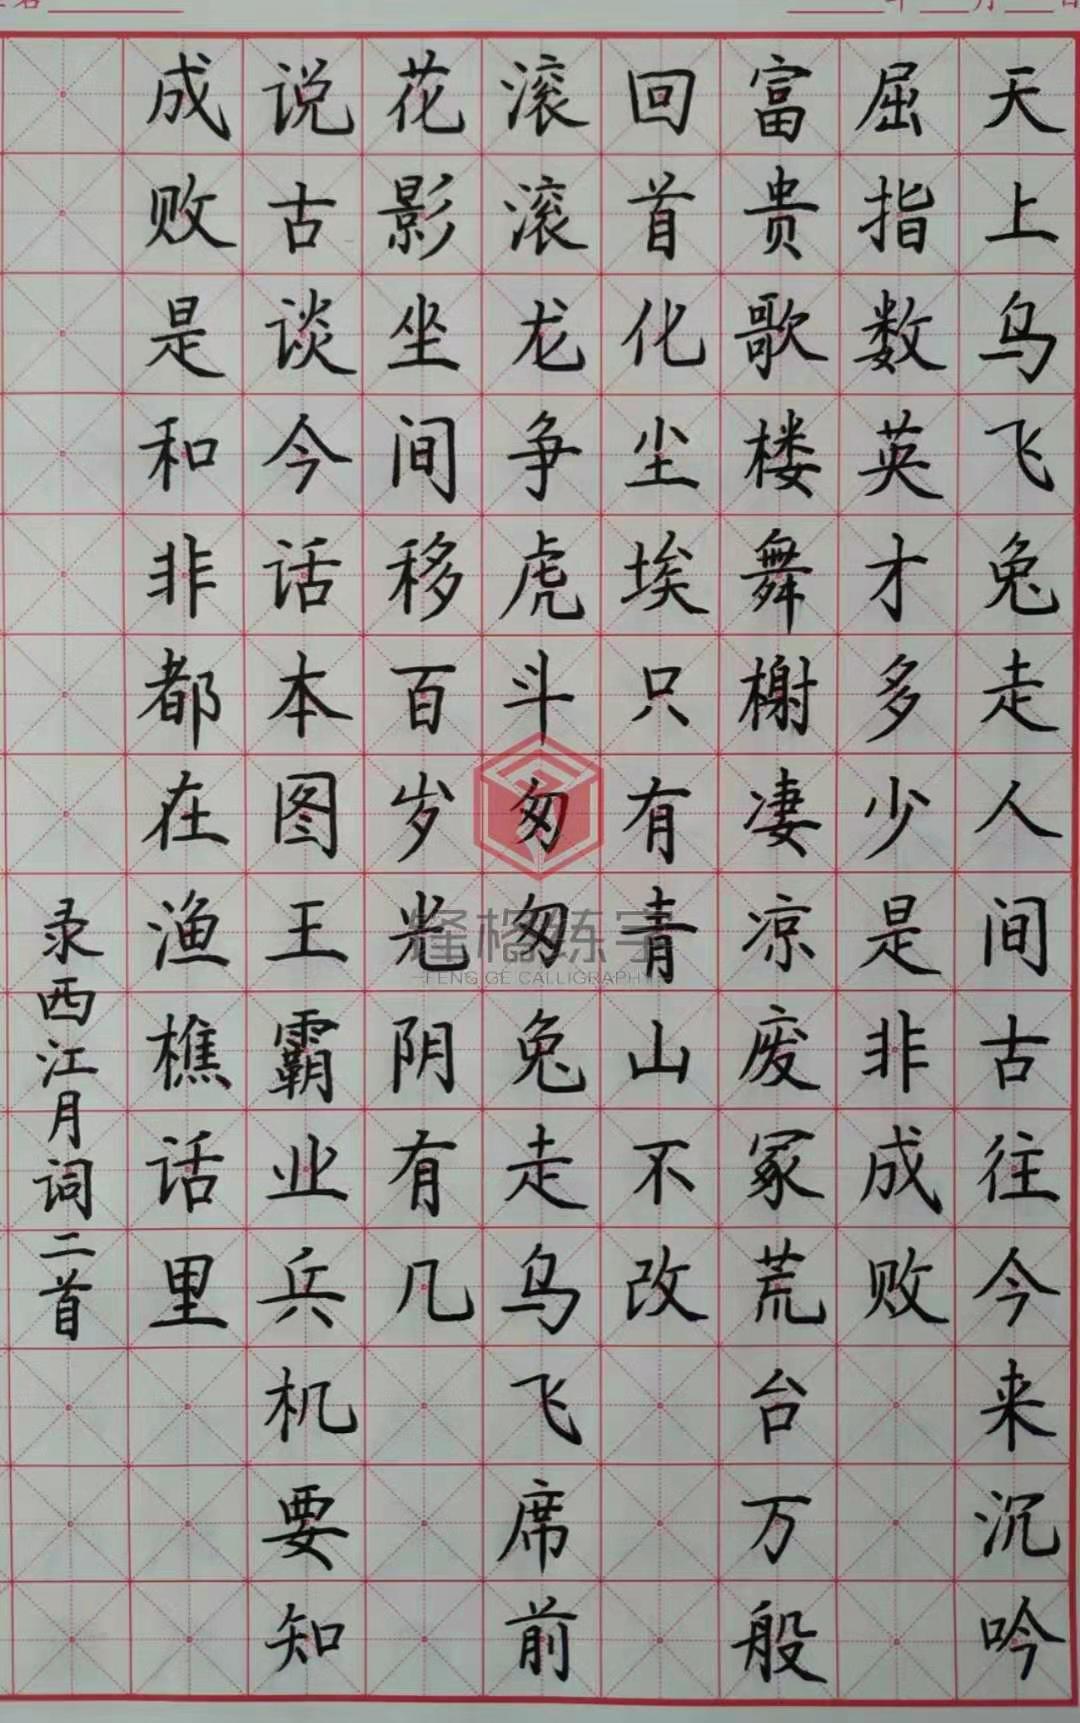 天上乌飞兔走人间古往今来沉吟
屈指数英才多少是非成败
富贵歌楼舞榭凄凉废冢荒台万般
回首化尘埃只有青山不改
滚滚龙争虎斗匆匆兔走乌飞席前
花影坐间移百岁光阴有几
说古谈今话本图王霸业兵机要知
成败是和非都在渔樵话里
录西江月词二首
烽格练字
FENG GE CALLIGRAPHY
年 月 日